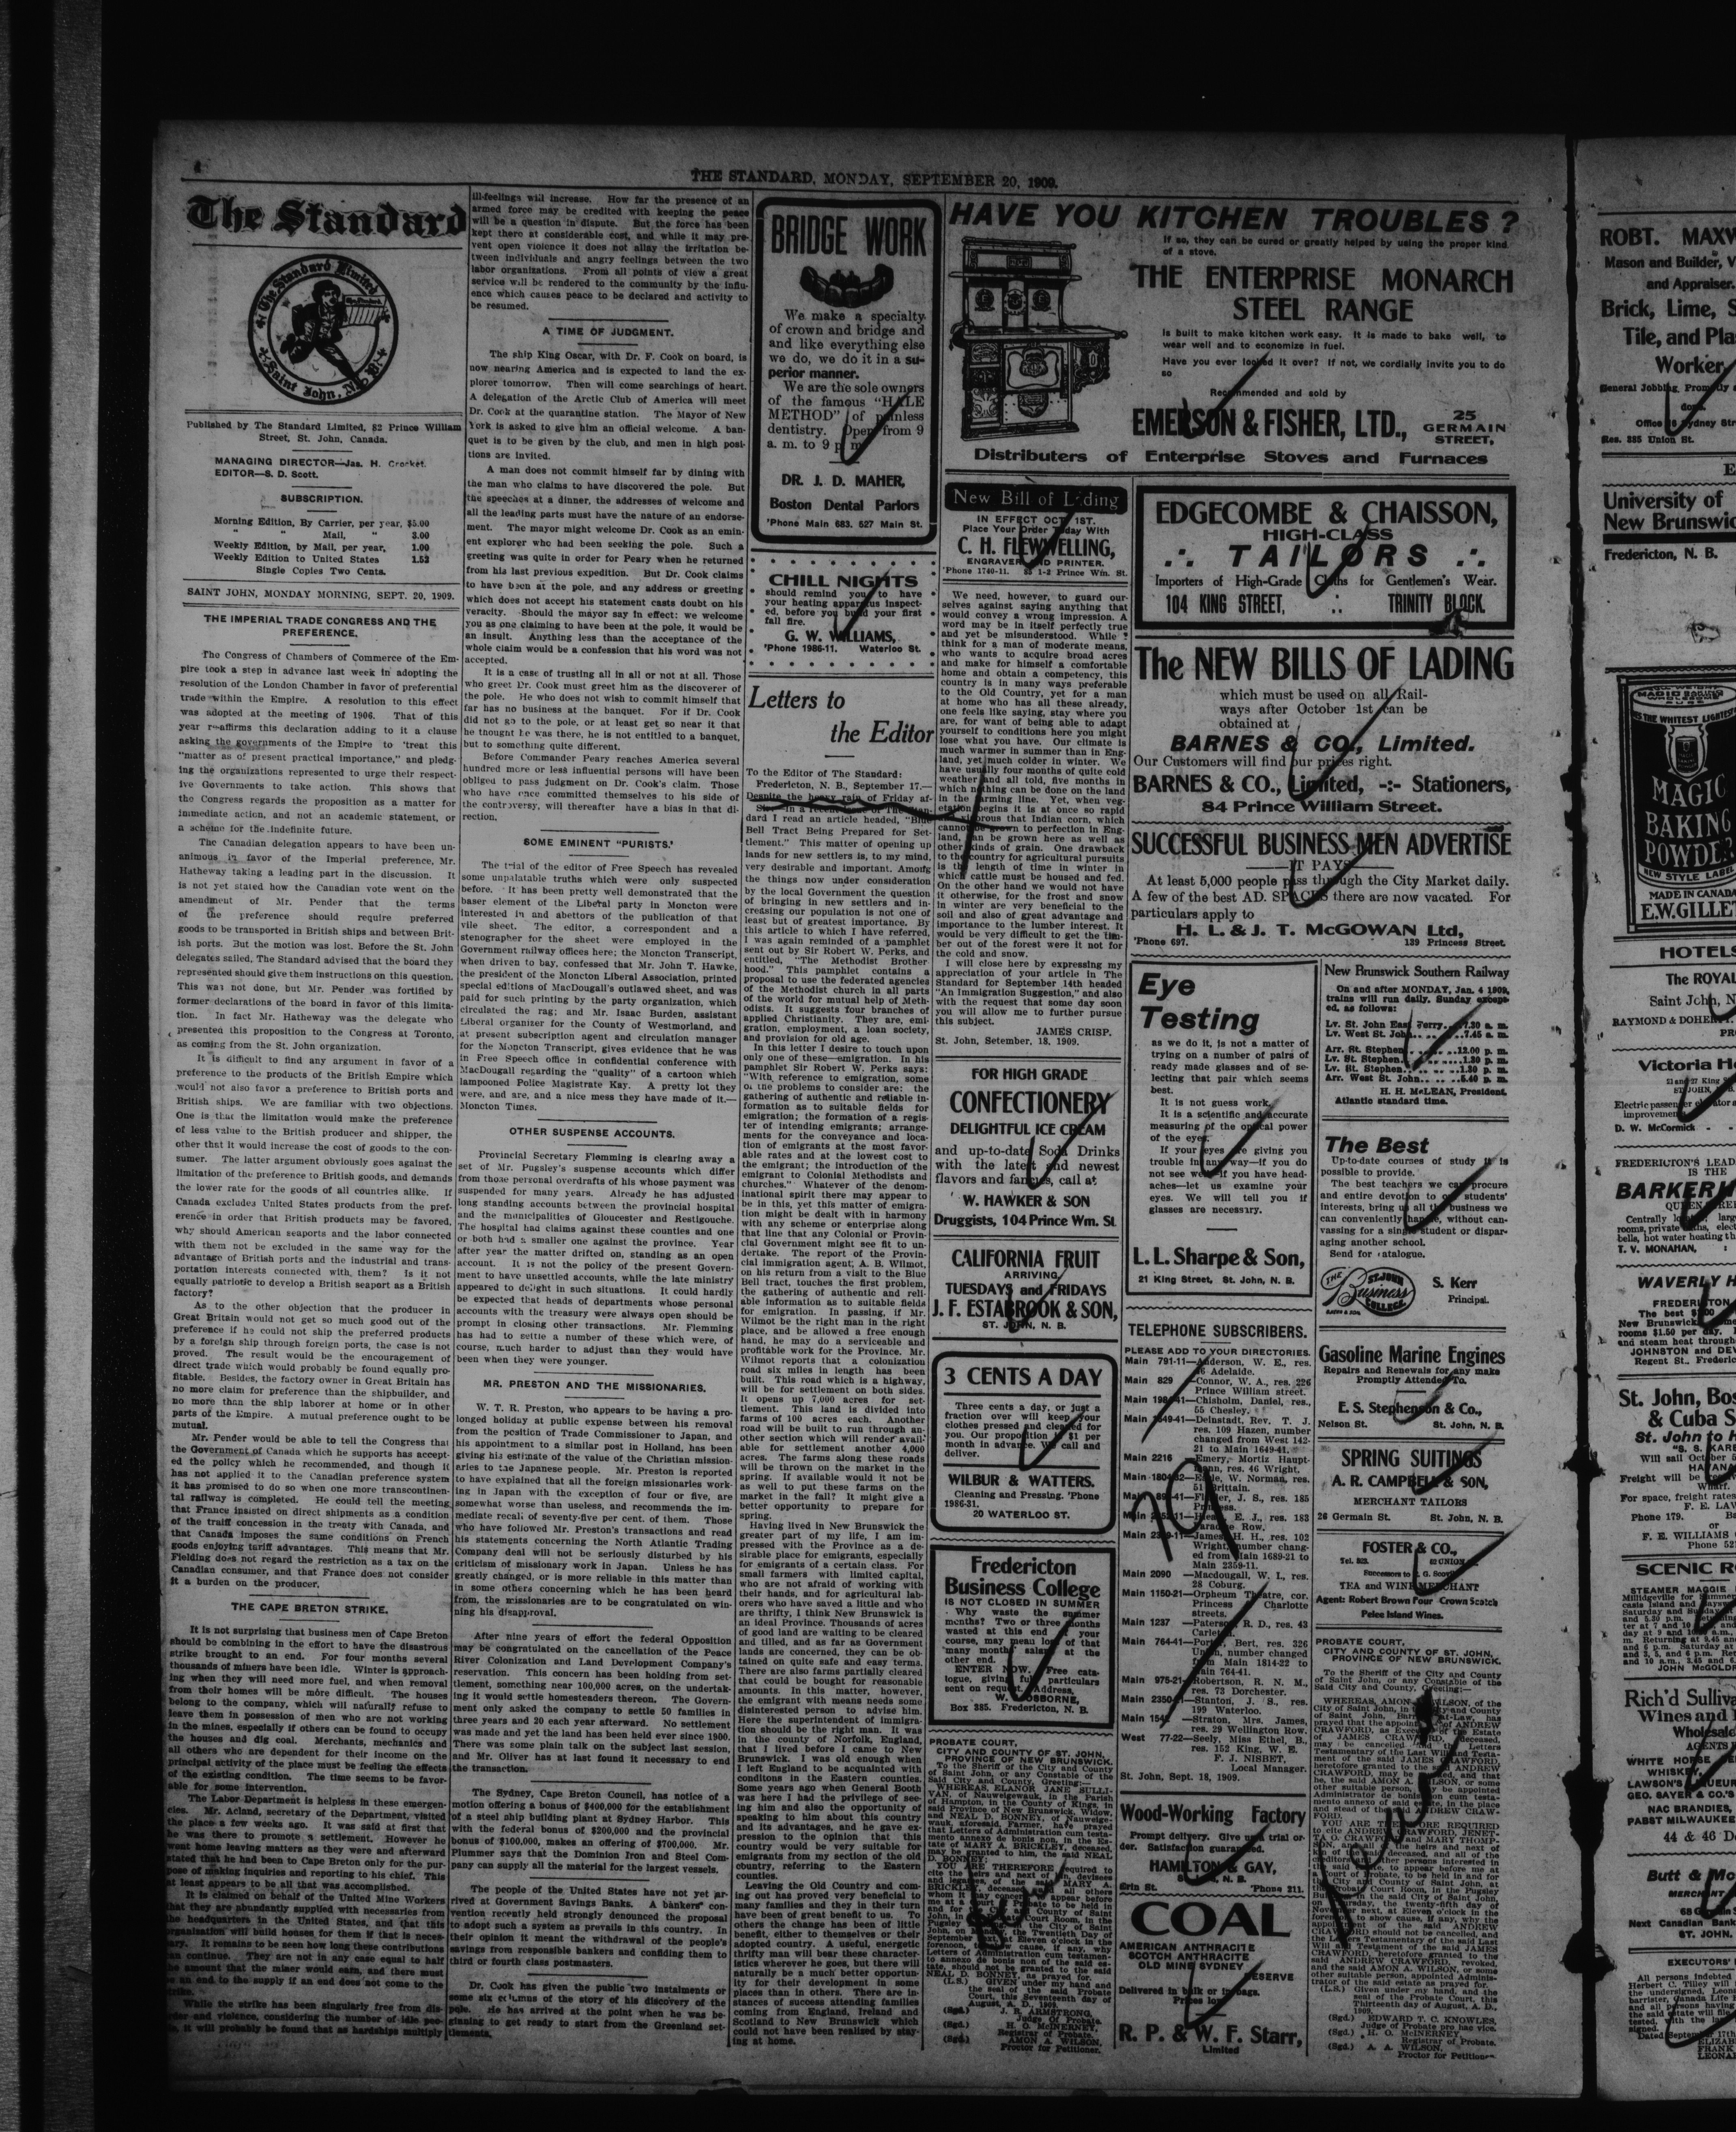 4
THE STANDARD, MONDAY, SEPTEMBER 20, 1909.
The Standard
The Standard Limited
Saint John, N. B.
Published by The Standard Limited, 82 Prince William
Street, St. John, Canada.
MANAGING DIRECTOR—Jas. H. Crocket.
EDITOR—S. D. Scott.
SUBSCRIPTION.
Morning Edition, By Carrier, per year, $5.00
" " Mail, " 3.00
Weekly Edition, by Mail, per year, 1.00
Weekly Edition to United States 1.52
Single Copies Two Cents.
SAINT JOHN, MONDAY MORNING, SEPT. 20, 1909.
THE IMPERIAL TRADE CONGRESS AND THE
PREFERENCE.
The Congress of Chambers of Commerce of the Em-
pire took a step in advance last week in adopting the
resolution of the London Chamber in favor of preferential
trade within the Empire. A resolution to this effect
was adopted at the meeting of 1906. That of this
year reaffirms this declaration adding to it a clause
asking the governments of the Empire to 'treat this
"matter as of present practical importance," and pledg-
ing the organizations represented to urge their respect-
ive Governments to take action. This shows that
the Congress regards the proposition as a matter for
immediate action, and not an academic statement, or
a scheme for the indefinite future.
The Canadian delegation appears to have been un-
animous in favor of the Imperial preference, Mr.
Hatheway taking a leading part in the discussion. It
is not yet stated how the Canadian vote went on the
amendment of Mr. Pender that the terms
of the preference should require preferred
goods to be transported in British ships and between Brit-
ish ports. But the motion was lost. Before the St. John
delegates sailed, The Standard advised that the board they
represented should give them instructions on this question.
This was not done, but Mr. Pender was fortified by
former declarations of the board in favor of this limita-
tion. In fact Mr. Hatheway was the delegate who
presented this proposition to the Congress at Toronto,
as coming from the St. John organization.
It is difficult to find any argument in favor of a
preference to the products of the British Empire which
would not also favor a preference to British ports and
British ships. We are familiar with two objections.
One is that the limitation would make the preference
of less value to the British producer and shipper, the
other that it would increase the cost of goods to the con-
sumer. The latter argument obviously goes against the
limitation of the preference to British goods, and demands
the lower rate for the goods of all countries alike. If
Canada excludes United States products from the pref-
erence in order that British products may be favored,
why should American seaports and the labor connected
with them not be excluded in the same way for the
advantage of British ports and the industrial and trans-
portation interests connected with them? Is it not
equally patriotic to develop a British seaport as a British
factory?
As to the other objection that the producer in
Great Britain would not get so much good out of the
preference if he could not ship the preferred products
by a foreign ship through foreign ports, the case is not
proved. The result would be the encouragement of
direct trade which would probably be found equally pro-
fitable. Besides, the factory owner in Great Britain has
no more claim for preference than the shipbuilder, and
no more than the ship laborer at home or in other
parts of the Empire. A mutual preference ought to be
mutual.
Mr. Pender would be able to tell the Congress that
the Government of Canada which he supports has accept-
ed the policy which he recommended, and though it
has not applied it to the Canadian preference system
it has promised to do so when one more transcontinen-
tal railway is completed. He could tell the meeting
that France insisted on direct shipments as a condition
of the traiff concession in the treaty with Canada, and
that Canada imposes the same conditions on French
goods enjoying tariff advantages. This means that Mr.
Fielding does not regard the restriction as a tax on the
Canadian consumer, and that France does not consider
it a burden on the producer.
THE CAPE BRETON STRIKE.
It is not surprising that business men of Cape Breton
should be combining in the effort to have the disastrous
strike brought to an end. For four months several
thousands of miners have been idle. Winter is approach-
ing when they will need more fuel, and when removal
from their homes will be more difficult. The houses
belong to the company, which will naturally refuse to
leave them in possession of men who are not working
in the mines, especially if others can be found to occupy
the houses and dig coal. Merchants, mechanics and
all others who are dependent for their income on the
principal activity of the place must be feeling the effects
of the existing condition. The time seems to be favor-
able for some intervention.
The Labor Department is helpless in these emergen-
cies. Mr. Acland, secretary of the Department, visited
the place a few weeks ago. It was said at first that
he was there to promote a settlement. However he
went home leaving matters as they were and afterward
stated that he had been to Cape Breton only for the pur-
pose of making inquiries and reporting to his chief. This
at least appears to be all that was accomplished.
It is claimed on behalf of the United Mine Workers
that they are abundantly supplied with necessaries from
the headquarters in the United States, and that this
organization will build houses for them if that is neces-
sary. It remains to be seen how long these contributions
can continue. They are not in any case equal to half
the amount that the miner would earn, and there must
be an end to the supply if an end does not come to the
strike.
While the strike has been singularly free from dis-
order and violence, considering the number of idle peo-
ple, it will probably be found that as hardships multiply
ill-feelings will increase. How far the presence of an
armed force may be credited with keeping the peace
will be a question in dispute. But the force has been
kept there at considerable cost, and while it may pre-
vent open violence it does not allay the irritation be-
tween individuals and angry feelings between the two
labor organizations. From all points of view a great
service will be rendered to the community by the influ-
ence which causes peace to be declared and activity to
be resumed.
A TIME OF JUDGMENT.
The ship King Oscar, with Dr. F. Cook on board, is
now nearing America and is expected to land the ex-
plorer tomorrow. Then will come searchings of heart.
A delegation of the Arctic Club of America will meet
Dr. Cook at the quarantine station. The Mayor of New
York is asked to give him an official welcome. A ban-
quet is to be given by the club, and men in high posi-
tions are invited.
A man does not commit himself far by dining with
the man who claims to have discovered the pole. But
the speeches at a dinner, the addresses of welcome and
all the leading parts must have the nature of an endorse-
ment. The mayor might welcome Dr. Cook as an emin-
ent explorer who had been seeking the pole. Such a
greeting was quite in order for Peary when he returned
from his last previous expedition. But Dr. Cook claims
to have been at the pole, and any address or greeting
which does not accept his statement casts doubt on his
veracity. Should the mayor say in effect: we welcome
you as one claiming to have been at the pole, it would be
an insult. Anything less than the acceptance of the
whole claim would be a confession that his word was not
accepted.
It is a case of trusting all in all or not at all. Those
who greet Dr. Cook must greet him as the discoverer of
the pole. He who does not wish to commit himself that
far has no business at the banquet. For if Dr. Cook
did not go to the pole, or at least get so near it that
he thought he was there, he is not entitled to a banquet,
but to something quite different.
Before Commander Peary reaches America several
hundred more or less influential persons will have been
obliged to pass judgment on Dr. Cook's claim. Those
who have once committed themselves to his side of
the controversy, will thereafter have a bias in that di-
rection.
SOME EMINENT "PURISTS.'
The trial of the editor of Free Speech has revealed
some unpalatable truths which were only suspected
before. It has been pretty well demonstrated that the
baser element of the Liberal party in Moncton were
interested in and abettors of the publication of that
vile sheet. The editor, a correspondent and a
stenographer for the sheet were employed in the
Government railway offices here; the Moncton Transcript,
when driven to bay, confessed that Mr. John T. Hawke,
the president of the Moncton Liberal Association, printed
special editions of MacDougall's outlawed sheet, and was
paid for such printing by the party organization, which
circulated the rag; and Mr. Isaac Burden, assistant
Liberal organizer for the County of Westmorland, and
at present subscription agent and circulation manager
for the Moncton Transcript, gives evidence that he was
in Free Speech office in confidential conference with
MacDougall regarding the "quality" of a cartoon which
lampooned Police Magistrate Kay. A pretty lot they
were, and are, and a nice mess they have made of it.—
Moncton Times.
OTHER SUSPENSE ACCOUNTS.
Provincial Secretary Flemming is clearing away a
set of Mr. Pugsley's suspense accounts which differ
from those personal overdrafts of his whose payment was
suspended for many years. Already he has adjusted
long standing accounts between the provincial hospital
and the municipalities of Gloucester and Restigouche.
The hospital had claims against these counties and one
or both had a smaller one against the province. Year
after year the matter drifted on, standing as an open
account. It is not the policy of the present Govern-
ment to have unsettled accounts, while the late ministry
appeared to delight in such situations. It could hardly
be expected that heads of departments whose personal
accounts with the treasury were always open should be
prompt in closing other transactions. Mr. Flemming
has had to settle a number of these which were, of
course, much harder to adjust than they would have
been when they were younger.
MR. PRESTON AND THE MISSIONARIES.
W. T. R. Preston, who appears to be having a pro-
longed holiday at public expense between his removal
from the position of Trade Commissioner to Japan, and
his appointment to a similar post in Holland, has been
giving his estimate of the value of the Christian mission-
aries to the Japanese people. Mr. Preston is reported
to have explained that all the foreign missionaries work-
ing in Japan with the exception of four or five, are
somewhat worse than useless, and recommends the im-
mediate recall of seventy-five per cent. of them. Those
who have followed Mr. Preston's transactions and read
his statements concerning the North Atlantic Trading
Company deal will not be seriously disturbed by his
criticism of missionary work in Japan. Unless he has
greatly changed, or is more reliable in this matter than
in some others concerning which he has been heard
from, the missionaries are to be congratulated on win-
ning his disapproval.
After nine years of effort the federal Opposition
may be congratulated on the cancellation of the Peace
River Colonization and Land Development Company's
reservation. This concern has been holding from set-
tlement, something near 100,000 acres, on the undertak-
ing it would settle homesteaders thereon. The Govern-
ment only asked the company to settle 50 families in
three years and 20 each year afterward. No settlement
was made and yet the land has been held ever since 1900.
There was some plain talk on the subject last session,
and Mr. Oliver has at last found it necessary to end
the transaction.
The Sydney, Cape Breton Council, has notice of a
motion offering a bonus of $400,000 for the establishment
of a steel ship building plant at Sydney Harbor. This
with the federal bonus of $200,000 and the provincial
bonus of $100,000, makes an offering of $700,000. Mr.
Plummer says that the Dominion Iron and Steel Com-
pany can supply all the material for the largest vessels.
The people of the United States have not yet ar-
rived at Government Savings Banks. A bankers' con-
vention recently held strongly denounced the proposal
to adopt such a system as prevails in this country. In
their opinion it meant the withdrawal of the people's
savings from responsible bankers and confiding them to
third or fourth class postmasters.
Dr. Cook has given the public two instalments or
some six columns of the story of his discovery of the
pole. He has arrived at the point when he was be-
ginning to get ready to start from the Greenland set-
tlements.
BRIDGE WORK
We make a specialty
of crown and bridge and
and like everything else
we do, we do it in a su-
perior manner.
We are the sole owners
of the famous "HALE
METHOD" of painless
dentistry. Open from 9
a. m. to 9 p. m.
DR. J. D. MAHER,
Boston Dental Parlors
'Phone Main 683. 527 Main St.
CHILL NIGHTS
should remind you to have
your heating apparatus inspect-
ed, before you build your first
fall fire.
G. W. WILLIAMS,
'Phone 1986-11. Waterloo St.
Letters to
the Editor
To the Editor of The Standard:
Fredericton, N. B., September 17.—
Despite the heavy rain of Friday af-
Sir:—In a recent issue of The Stan-
dard I read an article headed, "Blue
Bell Tract Being Prepared for Set-
tlement." This matter of opening up
lands for new settlers is, to my mind,
very desirable and important. Among
the things now under consideration
by the local Government the question
of bringing in new settlers and in-
creasing our population is not one of
least but of greatest importance. By
this article to which I have referred,
I was again reminded of a pamphlet
sent out by Sir Robert W. Perks, and
entitled, "The Methodist Brother-
hood." This pamphlet contains a
proposal to use the federated agencies
of the Methodist church in all parts
of the world for mutual help of Meth-
odists. It suggests four branches of
applied Christianity. They are, emi-
gration, employment, a loan society,
and provision for old age.
In this letter I desire to touch upon
only one of these—emigration. In his
pamphlet Sir Robert W. Perks says:
"With reference to emigration, some
of the problems to consider are: the
gathering of authentic and reliable in-
formation as to suitable fields for
emigration; the formation of a regis-
ter of intending emigrants; arrange-
ments for the conveyance and loca-
tion of emigrants at the most favor-
able rates and at the lowest cost to
the emigrant; the introduction of the
emigrant to Colonial Methodists and
churches." Whatever of the denom-
inational spirit there may appear to
be in this, yet this matter of emigra-
tion might be dealt with in harmony
with any scheme or enterprise along
that line that any Colonial or Provin-
cial Government might see fit to un-
dertake. The report of the Provin-
cial immigration agent, A. B. Wilmot,
on his return from a visit to the Blue
Bell tract, touches the first problem,
the gathering of authentic and reli-
able information as to suitable fields
for emigration. In passing, if Mr.
Wilmot be the right man in the right
place, and be allowed a free enough
hand, he may do a serviceable and
profitable work for the Province. Mr.
Wilmot reports that a colonization
road six miles in length has been
built. This road which is a highway,
will be for settlement on both sides.
It opens up 7,000 acres for set-
tlement. This land is divided into
farms of 100 acres each. Another
road will be built to run through an-
other section which will render avail-
able for settlement another 4,000
acres. The farms along these roads
will be thrown on the market in the
spring. If available would it not be
as well to put these farms on the
market in the fall? It might give a
better opportunity to prepare for
spring.
Having lived in New Brunswick the
greater part of my life, I am im-
pressed with the Province as a de-
sirable place for emigrants, especially
for emigrants of a certain class. For
small farmers with limited capital,
who are not afraid of working with
their hands, and for agricultural lab-
orers who have saved a little and who
are thrifty, I think New Brunswick is
an ideal Province. Thousands of acres
of good land are waiting to be cleared
and tilled, and as far as Government
lands are concerned, they can be ob-
tained on quite safe and easy terms.
There are also farms partially cleared
that could be bought for reasonable
amounts. In this matter, however,
the emigrant with means needs some
disinterested person to advise him.
Here the superintendent of immigra-
tion should be the right man. It was
in the county of Norfolk, England,
that I lived before I came to New
Brunswick. I was old enough when
I left England to be acquainted with
conditons in the Eastern counties.
Some years ago when General Booth
was here I had the privilege of see-
ing him and also the opportunity of
speaking to him about this country
and its advantages, and he gave ex-
pression to the opinion that this
country would be very suitable for
emigrants from my section of the old
country, referring to the Eastern
counties.
Leaving the Old Country and com-
ing out has proved very beneficial to
many families and they in their turn
have been of great benefit to us. To
others the change has been of little
benefit, either to themselves or their
adopted country. A useful, energetic
thrifty man will bear these character-
istics wherever he goes, but there will
naturally be a much better opportun-
ity for their development in some
places than in others. There are in-
stances of success attending families
coming from England, Ireland and
Scotland to New Brunswick which
could not have been realized by stay-
ing at home.
HAVE YOU KITCHEN TROUBLES?
If so, they can be cured or greatly helped by using the proper kind
of a stove.
THE ENTERPRISE MONARCH
STEEL RANGE
Is built to make kitchen work easy. It is made to bake well, to
wear well and to economize in fuel.
Have you ever looked it over? If not, we cordially invite you to do
so
Recommended and sold by
EMERSON & FISHER, LTD., 25
GERMAIN
STREET,
Distributers of Enterprise Stoves and Furnaces
New Bill of Lading
IN EFFECT OCT. 1ST.
Place Your Order Today With
C. H. FLEWWELLING,
ENGRAVER AND PRINTER.
'Phone 1740-11. 85 1-2 Prince Wm. St.
We need, however, to guard our-
selves against saying anything that
would convey a wrong impression. A
word may be in itself perfectly true
and yet be misunderstood. While I
think for a man of moderate means,
who wants to acquire broad acres
and make for himself a comfortable
home and obtain a competency, this
country is in many ways preferable
to the Old Country, yet for a man
at home who has all these already,
one feels like saying, stay where you
are, for want of being able to adapt
yourself to conditions here you might
lose what you have. Our climate is
much warmer in summer than in Eng-
land, yet much colder in winter. We
have usually four months of quite cold
weather and all told, five months in
which nothing can be done on the land
in the farming line. Yet, when veg-
etation begins it is at once so rapid
and vigorous that Indian corn, which
cannot be grown to perfection in Eng-
land, can be grown here as well as
other kinds of grain. One drawback
to the country for agricultural pursuits
is the length of time in winter in
which cattle must be housed and fed.
On the other hand we would not have
it otherwise, for the frost and snow
in winter are very beneficial to the
soil and also of great advantage and
importance to the lumber interest. It
would be very difficult to get the tim-
ber out of the forest were it not for
the cold and snow.
I will close here by expressing my
appreciation of your article in The
Standard for September 14th headed
"An Immigration Suggestion," and also
with the request that some day soon
you will allow me to further pursue
this subject.
JAMES CRISP.
St. John, Setember, 18, 1909.
FOR HIGH GRADE
CONFECTIONERY
DELIGHTFUL ICE CREAM
and up-to-date Soda Drinks
with the latest and newest
flavors and fancies, call at
W. HAWKER & SON
Druggists, 104 Prince Wm. St.
CALIFORNIA FRUIT
ARRIVING
TUESDAYS and FRIDAYS
J. F. ESTABROOK & SON,
ST. JOHN, N. B.
3 CENTS A DAY
Three cents a day, or just a
fraction over will keep your
clothes pressed and cleaned for
you. Our proposition is $1 per
month in advance. We call and
deliver.
WILBUR & WATTERS.
Cleaning and Pressing. 'Phone
1986-31.
20 WATERLOO ST.
Fredericton
Business College
IS NOT CLOSED IN SUMMER
Why waste the summer
months? Two or three months
wasted at this end of your
course, may mean loss of that
many months' salary at the
other end.
ENTER NOW. Free cata-
logue, giving full particulars
sent on request. Address,
W. J. OSBORNE,
Box 385. Fredericton, N. B.
PROBATE COURT,
CITY AND COUNTY OF ST. JOHN,
PROVINCE OF NEW BRUNSWICK.
To the Sheriff of the City and County
of Saint John, or any Constable of the
Said City and County, Greeting:—
WHEREAS, ELANOR JANE SULLI-
VAN, of Nauweigewauk, in the Parish
of Hampton, in the County of Kings, in
said Province of New Brunswick, Widow,
and NEAL D. BONNEY, of Nauweige-
wauk, aforesaid, Farmer, have prayed
that Letters of Administration cum testa-
mento annexo de bonis non, in the Es-
tate of MARY A. BRICKLEY, deceased,
may be granted to him, the said NEAL
D. BONNEY:
YOU ARE THEREFORE required to
cite the heirs and next of kin, devisees
and legatees, of the said MARY A.
BRICKLEY, deceased, and all others
whom it may concern, to appear before
me at a Court of Probate to be held in
and for the City and County of Saint
John, in the Probate Court Room, in the
Pugsley Building, in the City of Saint
John, on Monday the Twentieth Day of
September next, at Eleven o'clock in the
forenoon, to show cause, if any, why
Letters of Administration cum testamen-
to annexo de bonis non of the said es-
tate, should not be granted to the said
NEAL D. BONNEY, as prayed for.
(L.S.) GIVEN under my hand and
the seal of the said Probate
Court, this Seventeenth day of
August, A. D., 1909.
(Sgd.) J. R. ARMSTRONG,
Judge Of Probate.
(Sgd.) H. O. McINERNEY,
Registrar of Probate.
(Sgd.) AMON A. WILSON,
Proctor for Petitioner.
EDGECOMBE & CHAISSON,
HIGH-CLASS
TAILORS
Importers of High-Grade Cloths for Gentlemen's Wear.
104 KING STREET, TRINITY BLOCK.
The NEW BILLS OF LADING
which must be used on all Rail-
ways after October 1st can be
obtained at
BARNES & CO., Limited.
Our Customers will find our prices right.
BARNES & CO., Limited, -:- Stationers,
84 Prince William Street.
SUCCESSFUL BUSINESS MEN ADVERTISE
—IT PAYS—
At least 5,000 people pass through the City Market daily.
A few of the best AD. SPACES there are now vacated. For
particulars apply to
H. L. & J. T. McGOWAN Ltd,
'Phone 697. 139 Princess Street.
Eye
Testing
as we do it, is not a matter of
trying on a number of pairs of
ready made glasses and of se-
lecting that pair which seems
best.
It is not guess work.
It is a scientific and accurate
measuring of the optical power
of the eyes.
If your eyes are giving you
trouble in any way—if you do
not see well—if you have head-
aches—let us examine your
eyes. We will tell you if
glasses are necessary.
L. L. Sharpe & Son,
21 King Street, St. John, N. B.
TELEPHONE SUBSCRIBERS.
PLEASE ADD TO YOUR DIRECTORIES.
Main 791-11—Anderson, W. E., res.
46 Adelaide.
Main 829 —Connor, W. A., res. 226
Prince William street.
Main 1984-41—Chisholm, Daniel, res.,
55 Chesley.
Main 1649-41—Deinstadt, Rev. T. J.
res. 109 Hazen, number
changed from West 142-
21 to Main 1649-41.
Main 2216 —Emery, Mortiz Haupt-
mann, res. 46 Wright.
Main 1804-32—Earle, W. Norman, res.
51 Brittain.
Main 89-41—Fisher, J. S., res. 185
Princess.
Main 2352-11—Heans, E. J., res. 183
Paradise Row.
Main 2359-11—James, H. H., res. 102
Wright, number chang-
ed from Main 1689-21 to
Main 2359-11.
Main 2090 —Macdougall, W. I., res.
28 Coburg.
Main 1150-21—Orpheum Theatre, cor.
Princess Charlotte
streets.
Main 1237 —Paterson, R. D., res. 43
Carleton.
Main 764-41—Porter, Bert, res. 326
Union, number changed
from Main 1814-22 to
Main 764-41.
Main 975-21—Robertson, R. N. M.,
res. 73 Dorchester.
Main 2350-41—Stanton, J. S., res.
199 Waterloo.
Main 1542 —Stratton, Mrs. James,
res. 29 Wellington Row.
West 77-22—Seely, Miss Ethel, B.,
res. 152 King, W. E.
F. J. NISBET,
Local Manager.
St. John, Sept. 18, 1909.
Wood-Working Factory
Prompt delivery. Give us a trial or-
der. Satisfaction guaranteed.
HAMILTON & GAY,
St. John, N. B.
Erin St. 'Phone 211.
COAL
AMERICAN ANTHRACITE
SCOTCH ANTHRACITE
OLD MINE SYDNEY
RESERVE
Delivered in bulk or in bags.
Prices low
R. P. & W. F. Starr,
Limited
New Brunswick Southern Railway
On and after MONDAY, Jan. 4 1909,
trains will run daily, Sunday except-
ed, as follows:
Lv. St. John East Ferry.. 7.30 a. m.
Lv. West St. John.. .. 7.45 a. m.
Arr. St. Stephen.. .. 12.00 p. m.
Lv. St. Stephen.. .. 1.30 p. m.
Lv. St. Stephen.. .. 1.30 p. m.
Arr. West St. John.. .. 5.40 p. m.
H. H. McLEAN, President.
Atlantic standard time.
The Best
Up-to-date courses of study it is
possible to provide.
The best teachers we can procure
and entire devotion to our students'
interests, bring us all the business we
can conveniently handle, without can-
vassing for a single student or dispar-
aging another school.
Send for catalogue.
THE ST. JOHN Business COLLEGE
S. Kerr
Principal.
Gasoline Marine Engines
Repairs and Renewals for any make
Promptly Attended To.
E. S. Stephenson & Co.,
Nelson St. St. John, N. B.
SPRING SUITINGS
A. R. CAMPBELL & SON,
MERCHANT TAILORS
26 Germain St. St. John, N. B.
FOSTER & CO.,
TEA and WINE MERCHANT
Agent: Robert Brown Four Crown Scotch
Pelee Island Wines.
PROBATE COURT,
CITY AND COUNTY OF ST. JOHN,
PROVINCE OF NEW BRUNSWICK.
To the Sheriff of the City and County
of Saint John, or any Constable of the
Said City and County, Greeting:—
WHEREAS, AMON A. WILSON, of the
City of Saint John, in the City and County
of Saint John, Barrister-at-Law, has
prayed that the appointment of ANDREW
CRAWFORD, as Executor of the Estate
of JAMES CRAWFORD, deceased,
may be cancelled and the Letters
Testamentary of the Last Will and Testa-
ment of the said JAMES CRAWFORD,
heretofore granted to the said ANDREW
CRAWFORD, may be revoked, and that
he, the said AMON A. WILSON, or some
other suitable person, may be appointed
Administrator de bonis non cum testa-
mento annexo of said estate, in the place
and stead of the said ANDREW CRAW-
FORD.
YOU ARE THEREFORE REQUIRED
to cite ANDREW CRAWFORD, JENET-
TA O. CRAWFORD and MARY THOMP-
SON, and all of the heirs and next of
kin of the said deceased, and all of the
creditors and other persons interested in
the said estate, to appear before me at
a Court of Probate, to be held in and for
the City and County of Saint John, at
the Probate Court Room, in the Pugsley
Building, in the said City of Saint John,
on Thursday, the twenty-fifth day of
November next, at Eleven o'clock in the
forenoon, to show cause, if any, why the
appointment of the said ANDREW
CRAWFORD should not be cancelled, and
the Letters Testamentary of the said Last
Will and Testament of the said JAMES
CRAWFORD, heretofore granted to the
said ANDREW CRAWFORD, revoked,
and the said AMON A. WILSON, or some
other suitable person, appointed Adminis-
trator of the said estate as prayed for.
(L.S.) Given under my hand and the
seal of the Probate Court, this
Thirteenth day of August, A. D.,
1909.
(Sgd.) EDWARD T. C. KNOWLES,
Judge of Probate pro hac vice.
(Sgd.) H. O. McINERNEY,
Registrar of Probate.
(Sgd.) A. A. WILSON,
Proctor for Petitioner.
ROBT. MAXW
Mason and Builder, V
and Appraiser.
Brick, Lime, S
Tile, and Pla
Worker
General Jobbing Promptly
done.
Office 16 Sydney Str
Res. 385 Union St.
University of
New Brunswic
Fredericton, N. B.
MAGIC
BAKING
POWDER
MADE IN CANADA
E.W.GILLET
HOTELS
The ROYAL
Saint John, N
RAYMOND & DOHER
Victoria Ho
D. W. McCormick
FREDERICTON'S LEAD
IS THE
BARKER H
QUEEN
T. V. MONAHAN,
WAVERLY H
FREDERICTON
JOHNSTON and DEW
Regent St., Frederic
St. John, Bos
& Cuba S
St. John to H
Will sail October 5
HAVANA
Freight will be
Wharf.
For space, freight rates
F. E. LA
Phone 179.
or
F. E. WILLIAMS
Phone 521
SCENIC R
STEAMER MAGGIE
JOHN McGOLD
Rich'd Sulliva
Wines and
Wholesale
AGENTS
WHITE HORSE
WHISKEY,
LAWSON'S LIQUEUR
GEO. SAYER & CO.'S
NAC BRANDIES,
PABST MILWAUKEE
44 & 46 D
Butt & Mc
MERCHANT
68 G
Next Canadian Bank
ST. JOHN.
EXECUTORS'
All persons indebted
Herbert C. Tilley
the undersigned, Leona
barrister, Canada Life
and all persons having
the said estate will file
signed.
Dated September 17th
ELIZAB
FRANK
LEONA